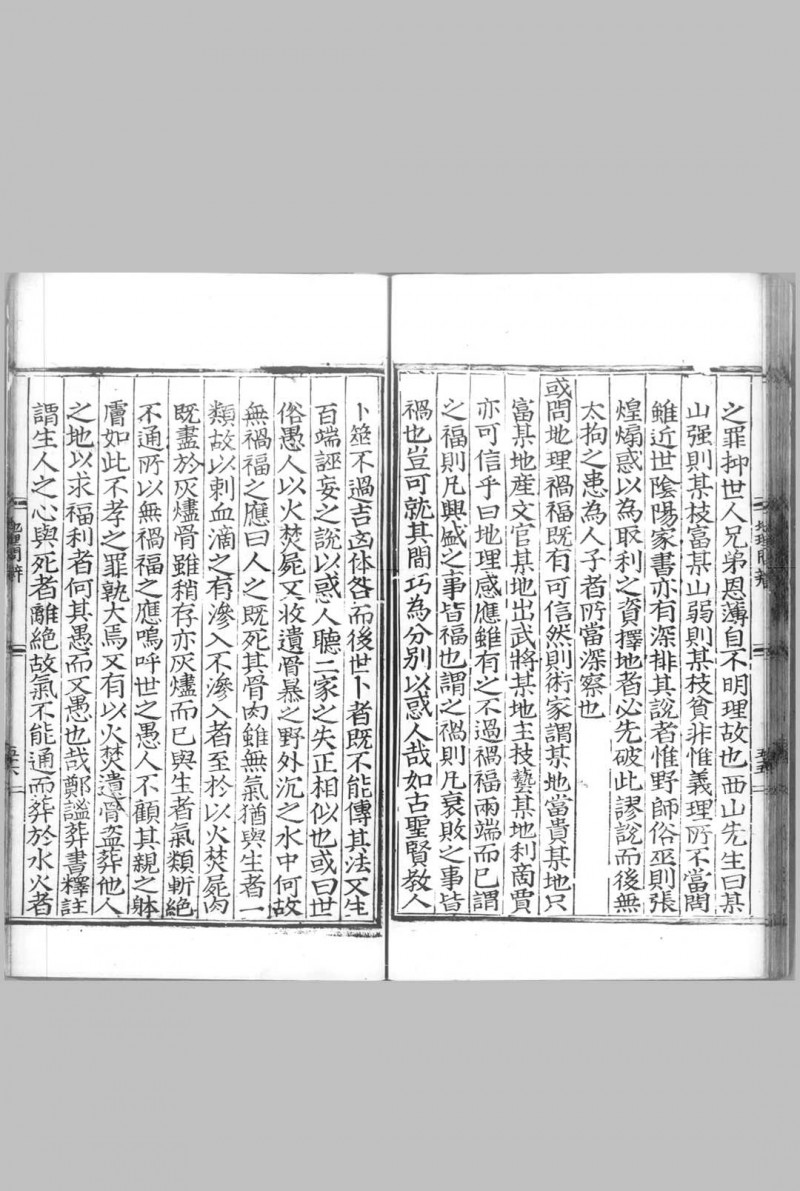 之罪抑世人兄弟恩薄自不明理故也西山先生曰某
山强則某枝富某山弱則某枝貧非惟義理所不當問
雖近世陰陽家書亦有深排其說者惟野師俗巫則張
煌煽惑以為取利之資擇地者必先破此謬說而後無
太拘之患為人子者所當深察也
或問地理禍福既有可信然則術家謂某地當貴某地只
富某地産文官某地出武將某地主技藝某地利商賈
亦可信乎曰地理感應雖有之不過禍福兩端而已謂
之福則凡興盛之事皆福也謂之禍則凡衰敗之事皆
禍也豈可就其間巧為分別以惑人哉如古聖賢教人
地理問辨
卜筮不過吉凶休咎而後世卜者既不能傳其法又生
百端誣妄之說以惑人聽二家之失正相似也或曰世
俗愚人以火焚屍又收遺骨暴之野外沉之水中何故
無禍福之應曰人之既死其骨肉雖無氣猶與生者一
類故以刺血滴之有滲入不滲入者至於以火焚屍肉
既盡於灰燼骨雖稍存亦灰燼而已與生者氣類斬絶
不通所以無禍福之應嗚呼世之愚人不顧其親之躰
膚如此不孝之罪孰大焉又有以火焚遺骨盗葬他人
之地以求福利者何其愚而又愚也哉鄭謐葬書釋註
謂生人之心與死者離絶故氣不能通而葬於水火者
地理問辨